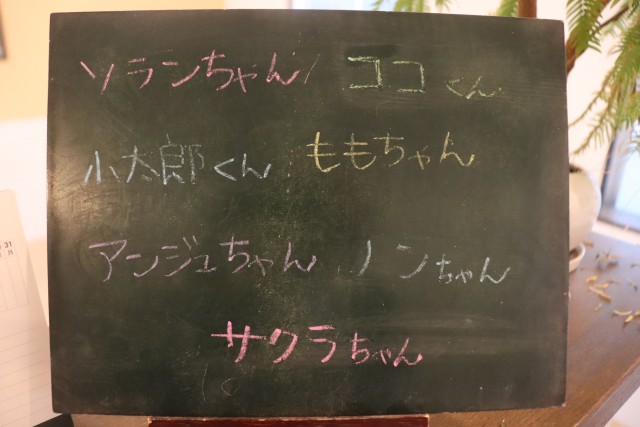 ソランちゃん ココくん
小太郎くん ももちゃん
アンジュちゃん ノンちゃん
サクラちゃん
31